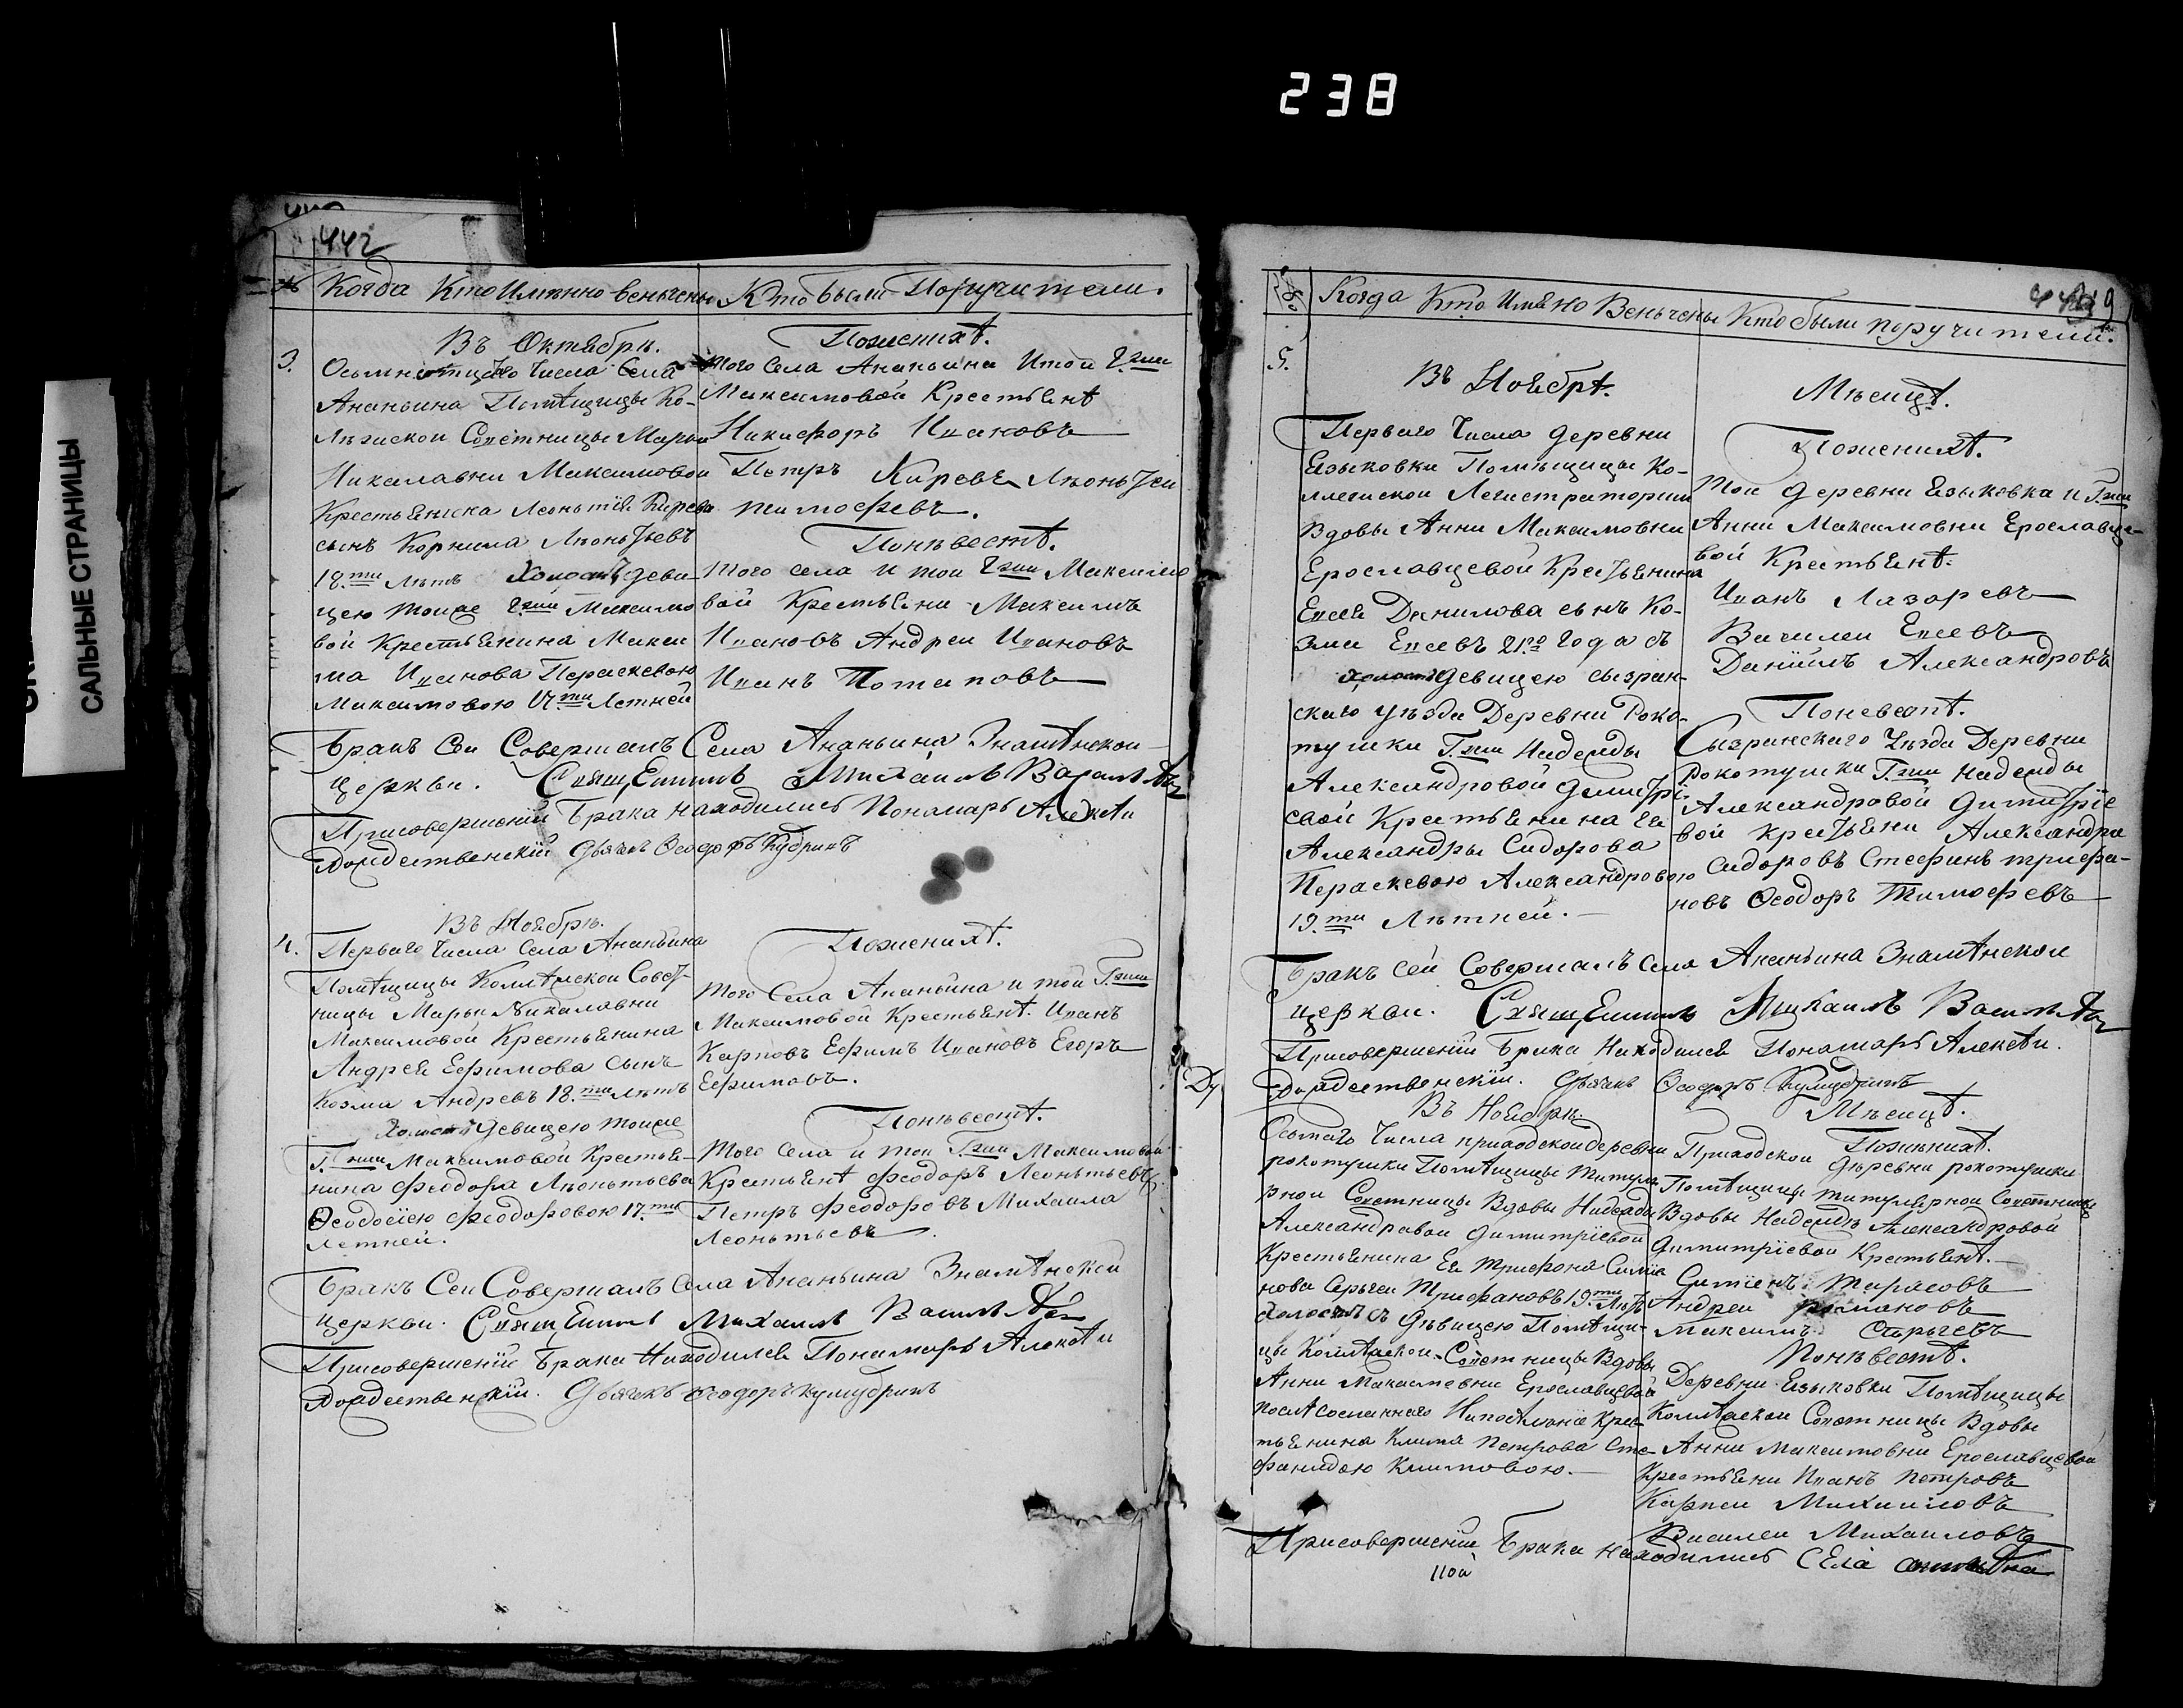 238
САЛЬНЫЕ СТРАНИЦЫ
442
№ Когда Кто Имѣнно венчены
Кто были Поручители.
Въ Октябрѣ.
3. Осьмнатцатаго Числа Села
Ананьина Помѣщицы Ко-
лѣжской Советницы Марьи
Никалавны Максимовой
Крестьянина Леонтія Кирева
сынъ Корнила Лѣонтьевъ
18.ти Лѣтъ Холостъ деви-
цею тоиже Гжи Максимо
вой Крестьянина Макси
ма Иванова Параскевою
Максимовою 17ти Летней
Поженихѣ.
того Села Ананьина Итой Гжи
Максимовой Крестьянѣ
Никифоръ Ивановъ
Петръ Киревъ Лѣонътеи
тимофевъ.
Поневестѣ.
того села и тои Гжи Максимо
вой Крестьяни Максимъ
Ивановъ Андреи Ивановъ
Иванъ Потаповъ
Бракъ Сеи Совершалъ Села Ананьина Знамѣнской
церкви. Священникъ Михаилъ Васильевъ
Присовершеніи Брака находились Пономарь Алексѣи
Рождественскіи Дьячкъ Ѳеодоръ
Въ Ноябрѣ.
4. Перваго Числа Села Ананьина
Помѣщицы Колѣжской Совет-
ницы Марьи Никалавни
Максимовой Крестьянина
Андрея Ефимова сынъ
Козма Андревъ 18.ти лѣтъ
Холостъ Девицею тоиже
Гжи Максимовой Крестья-
нина Феодора Лѣонтьева
Ѳеодосіею Феодоровою 17.ти
Летней.
Поженихѣ.
того Села Ананьина и той Гжи
Максимовой Крестьянѣ. Иванъ
Карповъ Ефимъ Ивановъ Егоръ
Ефимовъ.
Поневестѣ.
того Села и тои Гжи Максимовой
Крестьянѣ Феодоръ Леонтьевъ.
Петръ Феодоровъ Михаила
Леонтьевъ.
Бракъ Сеи Совершалъ Села Ананьина Знамѣнской
церкви. Священникъ Михаилъ Васильевъ
Присовершеніи Брака Находился Пономарь Алексѣи
Рождественскіи. Дьячкъ Ѳеодоръ
Когда Кто Имяно Венчены
Кто были поручители.
5.
Въ Ноябрѣ.
Перваго Числа деревни
Езыковки Помѣщицы Ко-
ллежской Легистраторши
Вдовы Анни Максимовни
Ерославцевой Крестьянина
Евсея Данилова сынъ Ко-
зма Евсевъ 21.го Года съ
холостъ девицею Сызран-
скаго уѣзда Деревни Роко-
тушки Гжи Надежды
Александровой Димитрі-
евой Крестьянина Ея
Александры Сидорова
Пераскевою Александровою
19.ти Лѣтней.
Мѣсицѣ.
Поженихѣ.
тои деревни Езыковка и Гжи
Анни Максимовни Ерославце-
вой Крестьянѣ.
Иванъ Лазаревъ
Василеи Евсевъ
Даніилъ Александровъ
Поневестѣ.
Сызранскаго Уѣзда Деревни
Рокотушки Гжи Надежды
Александровой Димитріе
вой крестьяни Александра
Сидоровъ Стефанъ трифа-
новъ Ѳеодоръ Тимофевъ
Бракъ сеи Совершалъ села Ананьина Знамѣнской
церкви. Священникъ Михаилъ Васильевъ
Присовершеніи Брака Находился Пономарь Алексѣи.
Рождественскіи. Дьячкъ Ѳеодоръ
Въ Ноябрѣ.
Осьмаго Числа приходской деревни
рокотушки Помѣщицы титуля
рнои Советницы Вдовы Надежды
Александровой Димитріевой
Крестьянина Ея Трифона Симіа
нова Сергеи Трифановъ 19.ти лѣтъ
холостъ съ Дѣвицею Помѣщи-
цы Колѣжской Советницы Вдовы
Анни Максимевни Ерославцевой
Крес-
тьянина Клима Петрова Сте-
фанидою Климовою.
Мѣсицѣ.
Поженихѣ.
Приходской деревни рокотушки
Помѣщицы титулярной Советницы
Вдовы Надеждѣ Александровой
Димитріевой Крестьянѣ.
Симіенъ Тарасовъ
Андреи романовъ
Максимъ
Поневестѣ.
Деревни Езыковки Помѣщицы
Колѣжской Советницы Вдовы
Анни Максимовни Ерославцевой
Крестьяни Иванъ Петровъ
Карпеи Михаиловъ
Василеи Михаиловъ
Присовершеніи Брака находились Села